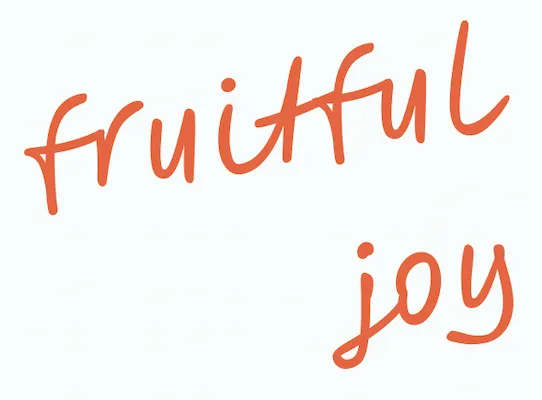 fruitful
joy